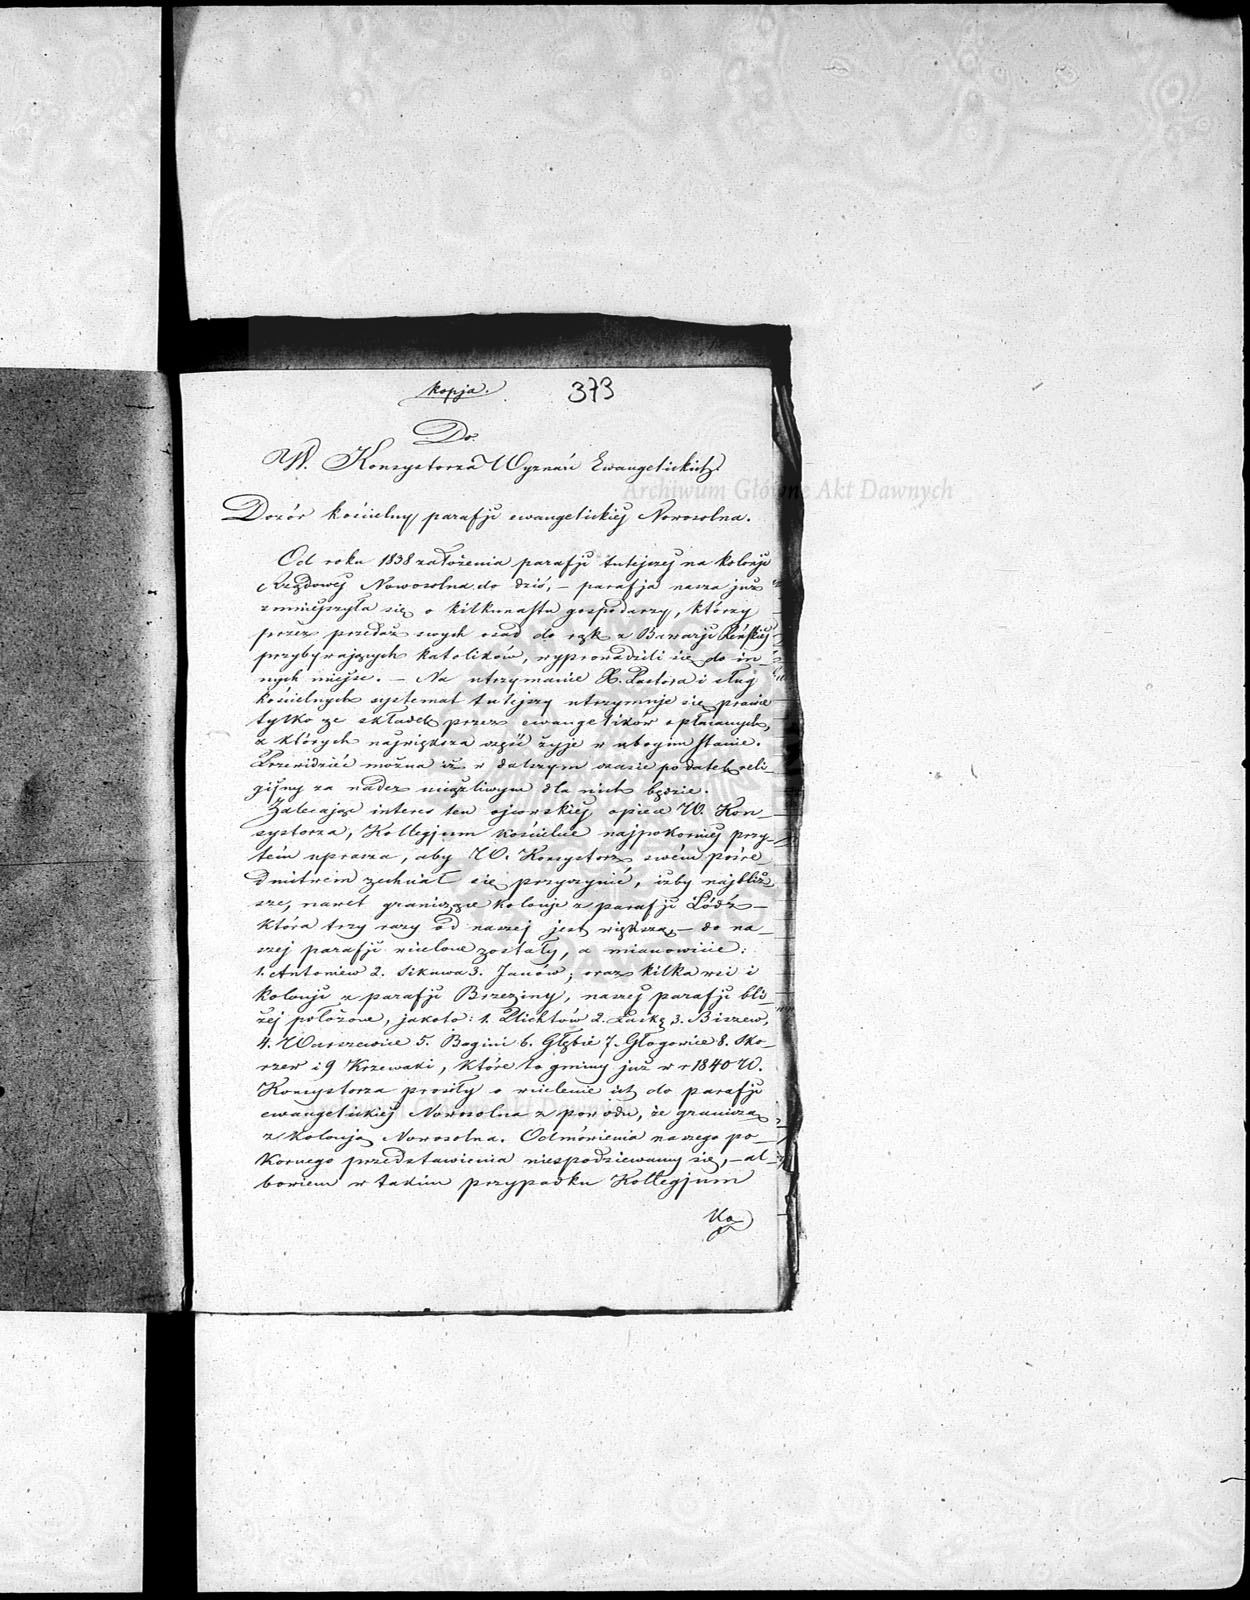 kopja. 373
Do
W. Konsystorza Wyznań Ewangelickich
Archiwum Główne Akt Dawnych
Dozór kościelny parafji ewangelickiej Nowosolna.
Od roku 1838 założenia parafji tutejszej na kolonji
Rządowej Nowosolna do dziś, – parafja nasza już
zmniejszyła się o kilkunastu gospodarzy, którzy
przez przedaż swych osad do rąk z Bawarji Reńskiej
przybywających katolików, wyprowadzili się do in-
nych miejsc. – Na utrzymanie X. Pastora i sług
kościelnych systemat tutejszy utrzymuje się prawie
tylko ze składek przez ewangelików opłacanych,
z których największa część żyje w ubogim stanie.
Przewidzieć można iż w dalszym czasie podatek reli-
gijny za nadez uciążliwym dla nich będzie.
Zalecając interes ten ojcowskiej opiece W. Kon-
systorza, Kollegjum kościelne najpokorniej przy-
tém uprasza, aby W. Konsystorz swém pośre-
dnictwem zechciał się przyczynić, iżby najbliż-
sze, nawet graniczące kolonje z parafji Łódź –
która trzy razy od naszej jest większa, – do na-
szej parafji wcielone zostały, a mianowicie:
1. Antoniew 2. Sikawa 3. Janów, oraz kilka wsi i
kolonji z parafji Brzeziny, naszej parafji bli-
żej położone, jakoto: 1. Plichtów 2. Łaskę 3. Biszew,
4. Warszewice 5. Bogini 6. Głąbie 7. Głogowice 8. Sko-
szew i 9 Krzewaki, które to gminy już w r 1840 W.
Konsystorza prosiły o wcielenie ich do parafji
ewangelickiej Nowosolna z powodu, że graniczą
z kolonją Nowosolna. Odmówienia naszego po-
kornego przedstawienia niespodziewamy się, – al-
bowiem w takim przypadku Kollegjum